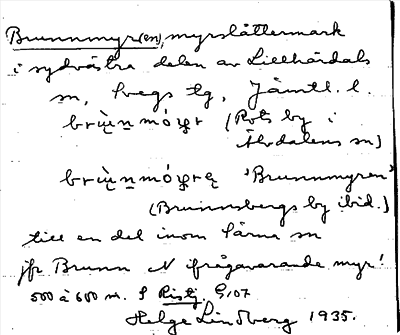 Brunnmyr(en), myrslåttermark
i sydvästra delen av Lillhärdals
sn, Svegs tg, Jämtl. l.
(Rots by i
Älvdalens sn)
'Brunnmyren'
(Brunnsbergs by ibid.)
till en del inom Särna sn
jfr Brunn N ifrågavarande myr!
500 à 600 m. S Ristj. G,07
Helge Lindberg 1935.